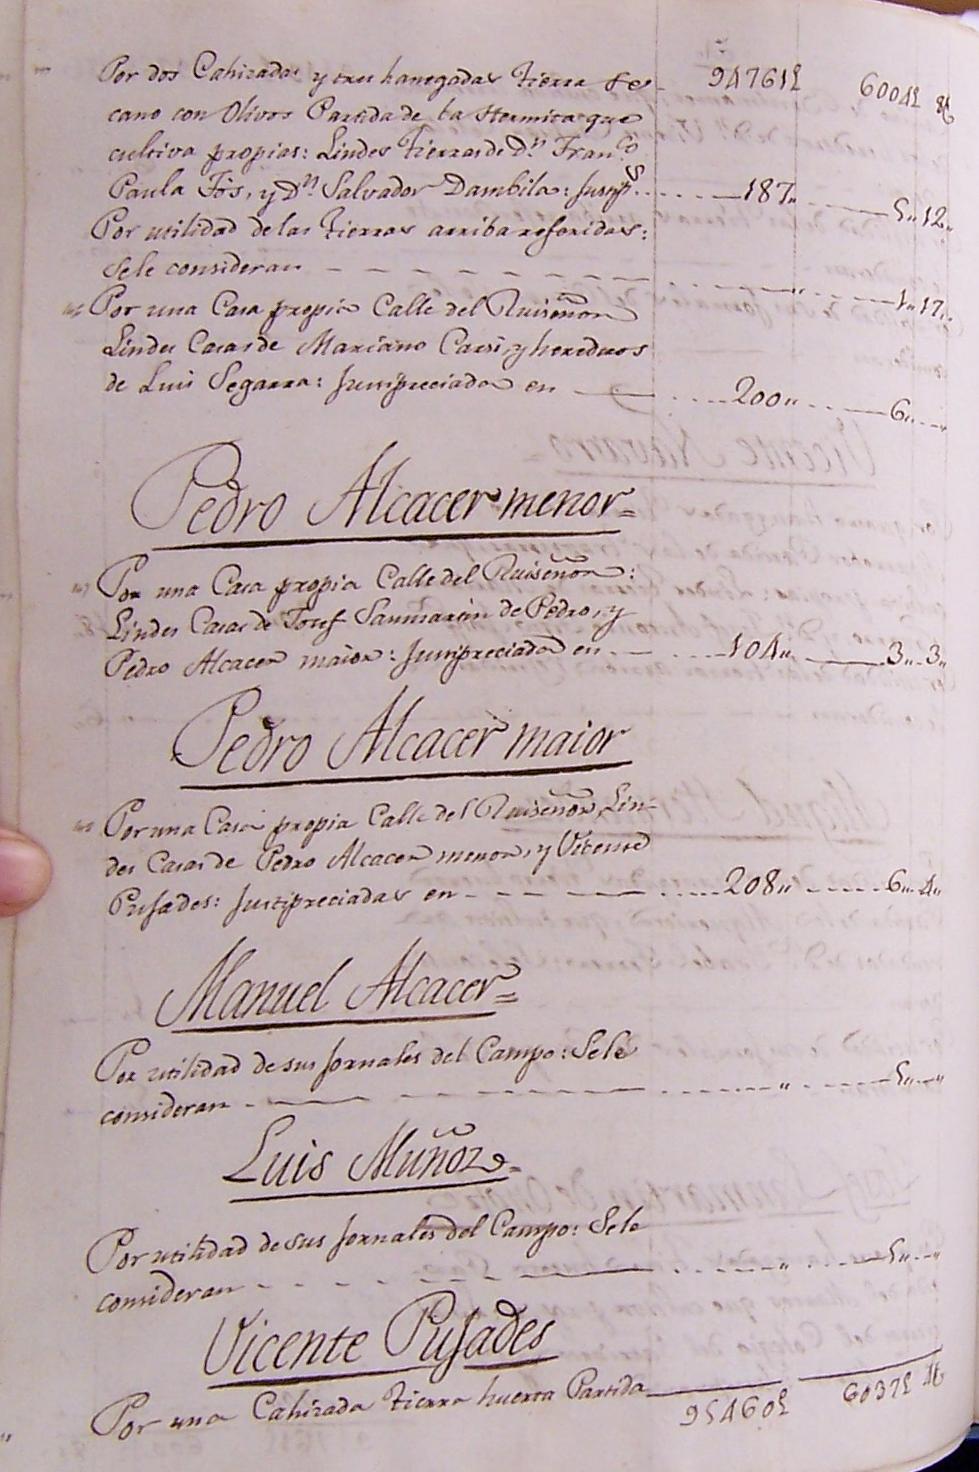 Por dos Cahizadas y tres hanegadas Tierra se- 94761£ 6004£ 8
cano con Olivos Partida de la Hermita que
cultiva propias: Lindes Tierras de Dn Franco
Paula Fós, y Dn Salvador Dambila: Justips. 187„ 5„12„
Por utilidad de las Tierras arriba referidas:
Sele consideran „ 1„17„
Por una Casa propia Calle del Ruiseñor
Lindes Casas de Mariano Carsi, y herederos
de Luis Segarra: Justipreciada en 200„ 6„
Pedro Alcacer menor=
Por una Casa propia Calle del Ruiseñor:
Lindes Casas de Josef Sanmartin de Pedro, y
Pedro Alcacer maior: Justipreciada en 104„ 3„3„
Pedro Alcacer maior
Por una Casa propia Calle del Ruiseñor, Lin-
des Casas de Pedro Alcacer menor, y Vicente
Pusades: Justipreciadas en 208„ 6„4„
Manuel Alcacer=
Por utilidad de sus Jornales del Campo: Sele
consideran „ 5„„
Luis Muñoz=
Por utilidad de sus Jornales del Campo: Sele
consideran „ 5„„
Vicente Pusades
Por una Cahizada Tierra huerta Partida 95460£ 6037£